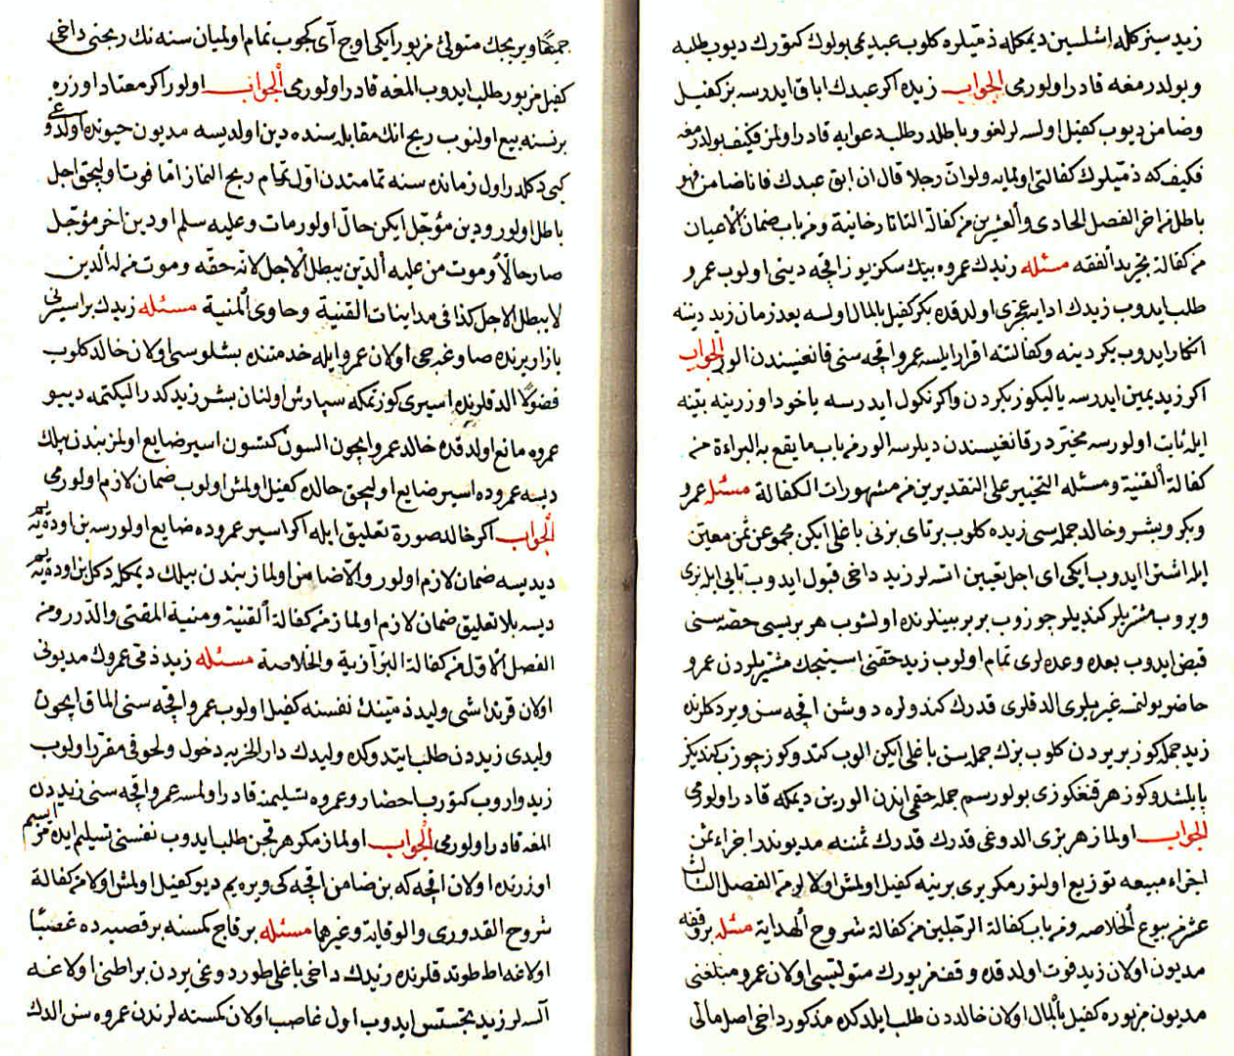 زيد سيز كله اشلسين ديمكله ذمتيلره كلوب عبديمى بولوك كتورك ديوب طلبه
وبولدرمغه قادر اولورمى الجواب زيده اكر عبدك اباق ايدرسه بز كفيل
وضامن ديوب كفيل اولسه لر لغو وباطلدر طلبه دعوايه قادر اولمز فكيف بولدرمغه
فكيف كه ذمتيلرك كفالتى اولمايه ولو ان رجلا قال ان ابق عبدك فانا ضامن فهو
باطل من اخر الفصل الحادى والعشرين من كفالة التاتارخانية ومن باب ضمان الاعيان
من كفالة تجريد الفقه مسئله زيدك عمروه بيك سكز يوز اقچه دينى اولوب عمرو
طلب ايدوب زيدك اداية عجزى اولدقده بكر كفيل بالمال اولسه بعد زمان زيد دينه
انكار ايدوب بكر دينه وكفالته اقرار ايلسه عمرو اقچه سنى قانغيسندن الور الجواب
اكر زيد يمين ايدرسه يالكوز بكردن واكر نكول ايدرسه ياخود اوزرينه بينه
ايله ثابت اولورسه مخيردر قانغيسندن ديلرسه الور من باب ما يقع به البراءة من
كفالة القنية ومسئله التخيير على التقديرين من مشهورات الكفالة مسئله عمرو
وبكر وبشر وخالد جمله سى زيده كلوب برتاى بزنى باغلى ايكن مجموعن ثمن معين
ايله اشترا ايدوب ايكى اى اجل تعيين اتسه لر زيد داخى قبول ايدوب تايى ايله بزى
ويروب مشتريلر كنديلر چوزوب بربرينلرنده اولشوب هر بريسى حصه سنى
قبض ايدوب بعده وعده لرى تمام اولوب زيد حقنى استيجك مشتريلردن عمرو
حاضر بولنمه غيريلرى الدقلرى قدرك كندولره دوشن اقچه سنى ويردكلرنده
زيد جمله كوز بربردن كلوب بزك جمله سن باغلى ايكن الوب كتدوكوز چوزبكنديكز
بايلشدوكوز هر قنغكوزى بولورسم جمله حقمى اندن الورين ديمكه قادر اولورمى
الجواب اولماز هر بزى الدوغى قدرك قدرك ثمننه مديوندر اجزاء ثمن
اجزاء مبيعه توزيع اولنور مكر برى برينه كفيل اولمش اولالر من الفصل الثالث
عشر من بيوع الخلاصه ومن باب كفالة الرجلين من كفالة شروح الهداية مسئله بر وقفه
مديون اولان زيد فوت اولدقده وقف مزبورك متوليسى اولان عمرو مبلغنى
مديون مزبوره كفيل بالمال اولان خالددن طلب ايلدكده مذكور داخى اصل مالى
جميعًا ويريجك متولى مزبور ايكى اوچ آى كچوب تمام اولميان سنه نك ربحنى داخى
كفيل مزبور طلب ايدوب المغه قادر اولورمى الجواب اولور اكر معتاد اوزره
برنسنه بيع اولنوب ربح انك مقابله سنده دين اولديسه مديون حيوتده اولدوغى
كبى دكلدر اول زمانده سنه تمامندن اول تمام ربح النماز اما فوت اوليجق اجل
باطل اولور ودين مؤجل ايكن حال اولور مات وعليه سلم او دين اخر مؤجل
صار حالا وموت من عليه الدين يبطل الاجل لانه حقه وموت من له الدين
لا يبطل الاجل كذا فى مداينات القنية وحاوى المنية مسئله زيدك بر اسيرنى
بازار يرنده صاوغه جى اولان عمرو ايله خدمتنده بشلوسى اولان خالد كلوب
فضولاً الدقلرنده اسيرى كوزتمكه سپارش اولنان بشر زيد كدر اليكتمه ديو
عمروه مانع اولدقده خالد عمرو ايچون السون كتسون اسير ضايع اولمز بندن بيلك
ديسه عمروده اسير ضايع اوليجق خالد كفيل اولمش اولوب ضمان لازم اولورمى
الجواب اكر خالد صورة تعليق ايله اكر اسير عمروده ضايع اولورسه بن اوده يه يم
ديديسه ضمان لازم اولور والا ضامن اولماز بندن بيلك ديمكله دكل بن اوده يه يم
ديسه بلا تعليق ضمان لازم اولماز من كفالة القنية ومنية المفتى والدرر ومن
الفصل الاول من كفالة البزازية والخلاصة مسئله زيد ذمى عمروك مديونى
اولان قرنداشى وليد ذميتنك نفسنه كفيل اولوب عمرو اقچه سنى الماق ايچون
وليدى زيددن طلب ايتدوكده وليدك دار الحربه دخول ولحوقى مقرر اولوب
زيد واروب كتورب احضار وعمروه تسليمنه قادر اولمسه عمرو اقچه سنى زيددن
المغه قادر اولورمى الجواب اولماز مكر هر قچن طلب ايدوب نفسنى تسليم ايده مز ايسم
اوزرنده اولان اقچه كه بن ضامن اقچه كى ويره يم ديو كفيل اولمش اولا من كفالة
شروح القدورى والوقاية وغيرها مسئله بر قاچ كمسنه بر قصبه ده غصبًا
اولاغه اط طوتدقلرنده زيدك داخى باغلى طوردوغى يردن بر اطنى اولاغه
السه لر زيد تجسس ايدوب اول غاصب اولان كمسنه لرندن عمروه سن الدك